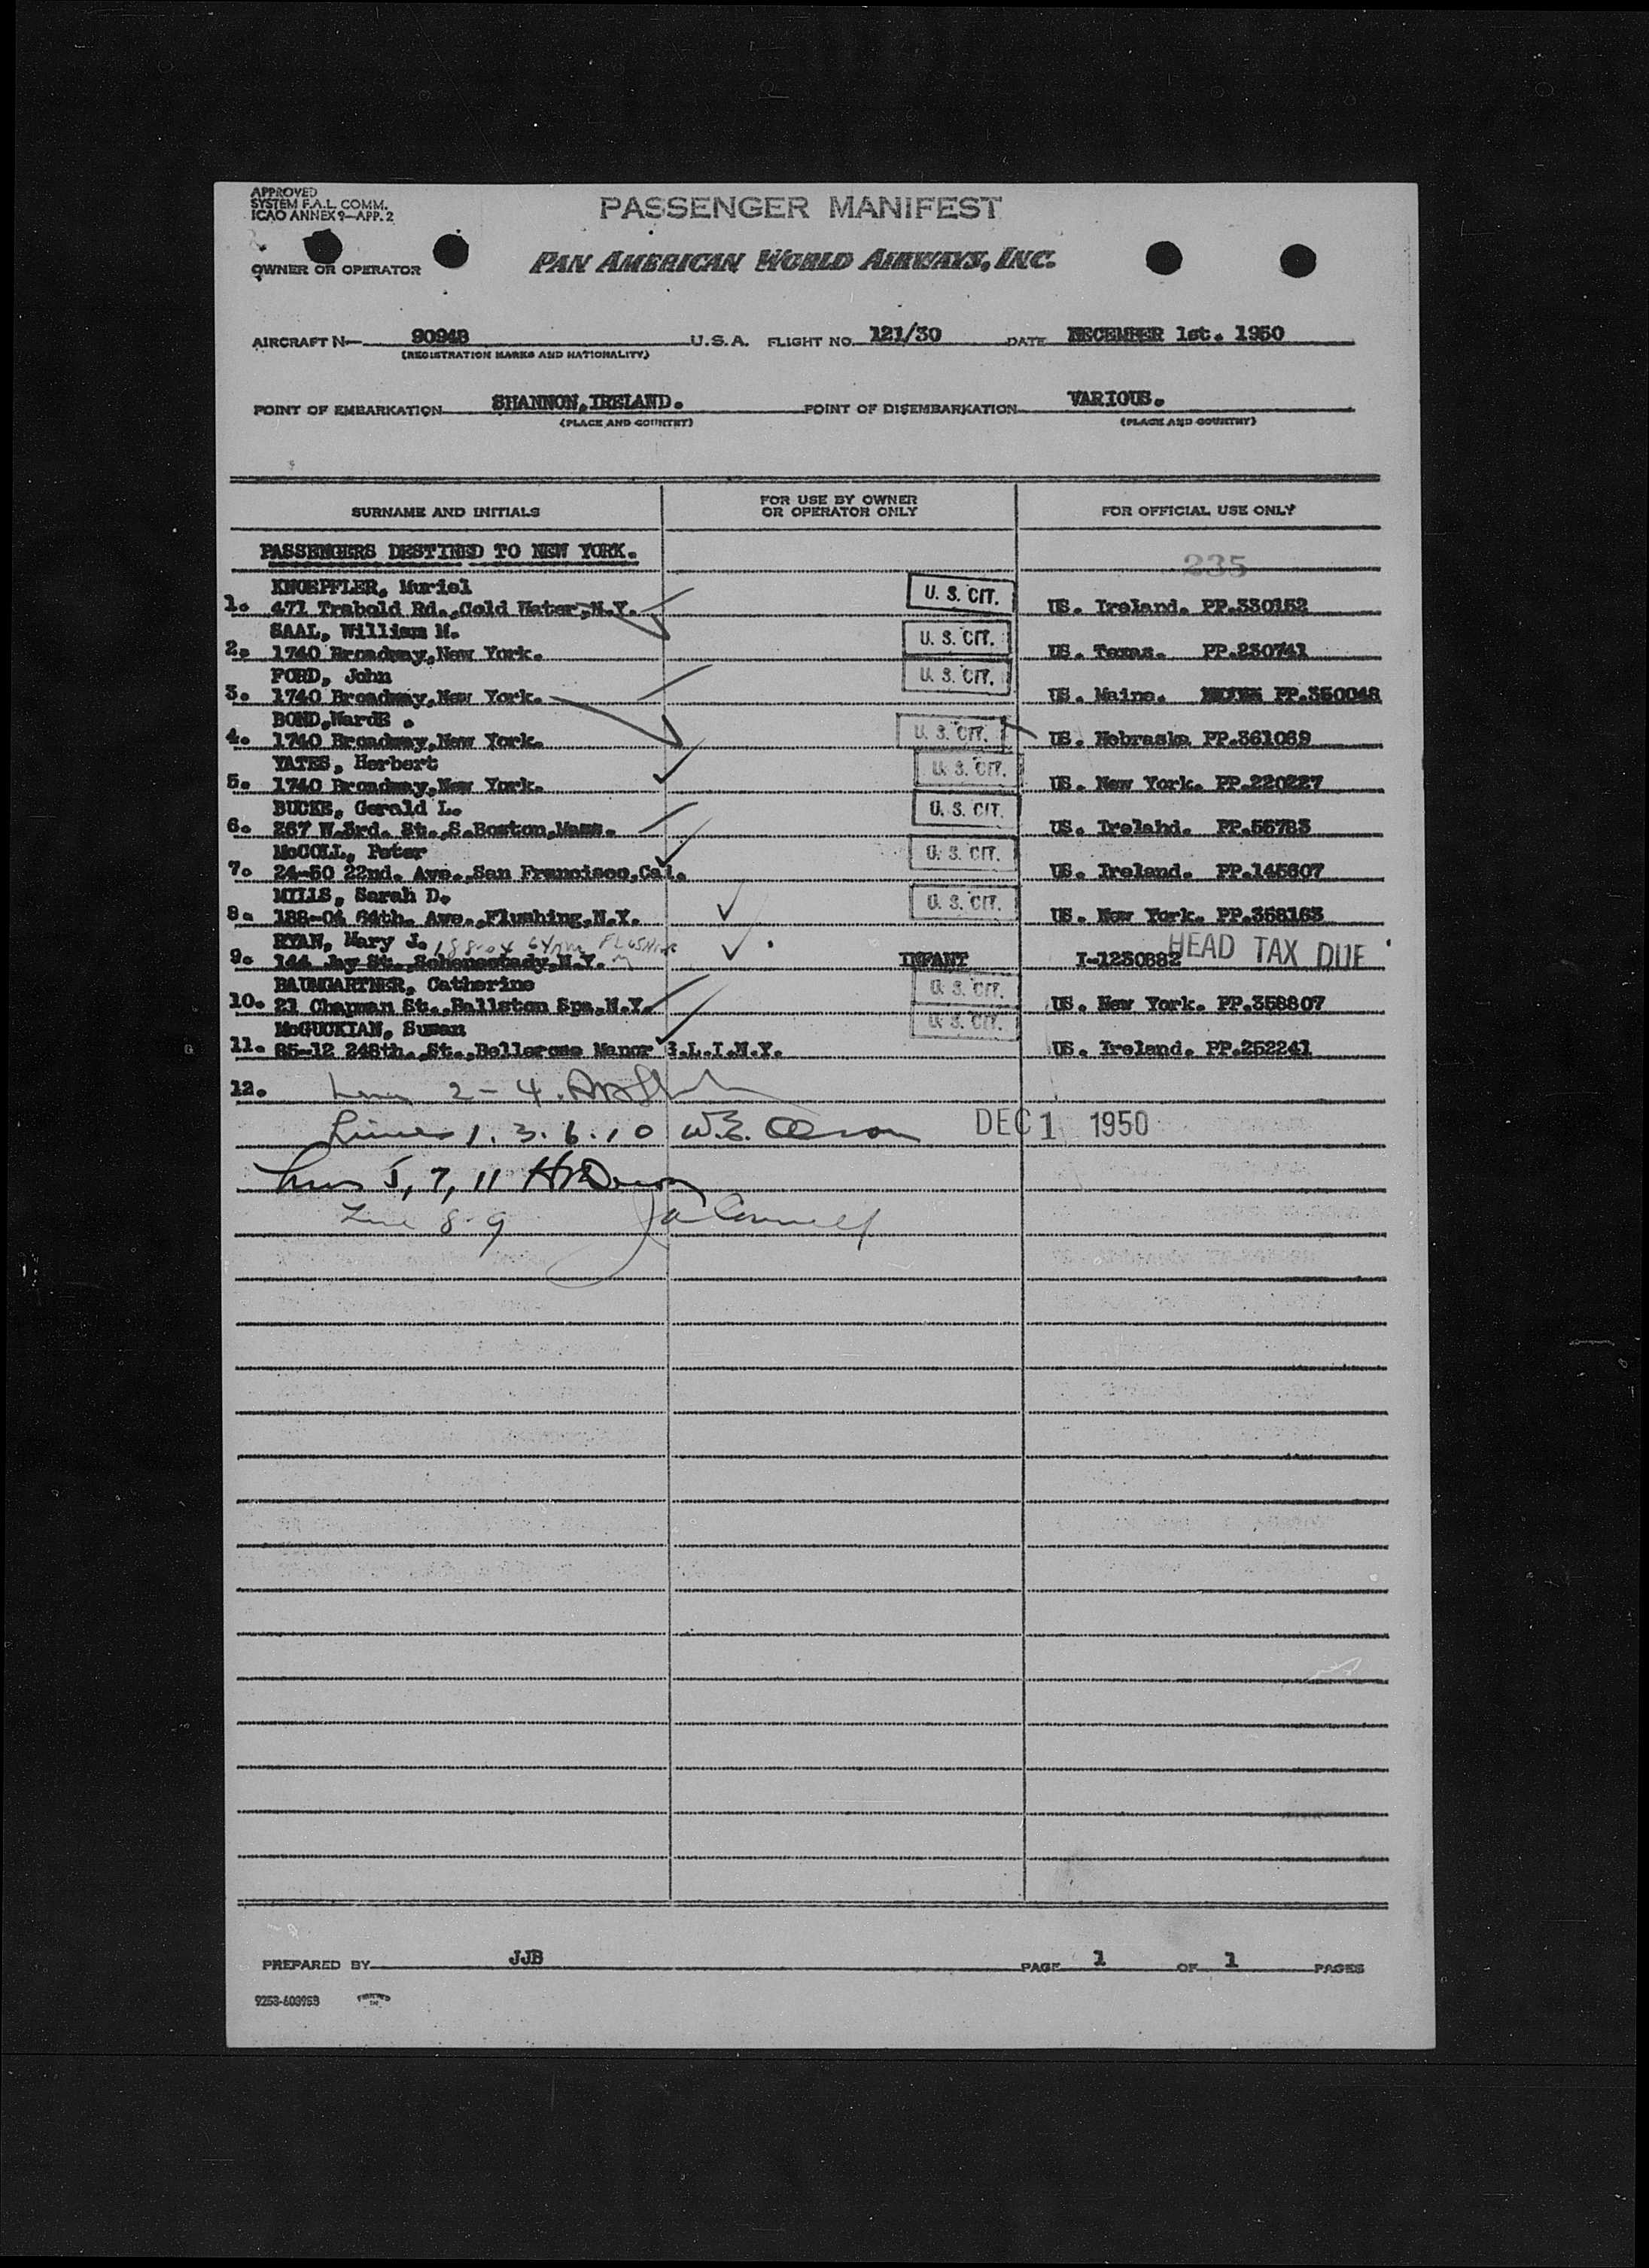 APPROVED
SYSTEM F.A.L. COMM.
ICAO ANNEX 9—APP. 2
PASSENGER MANIFEST
OWNER OR OPERATOR
PAN AMERICAN WORLD AIRWAYS, INC.
AIRCRAFT N— 90948 U.S.A. FLIGHT NO. 121/30 DATE DECEMBER 1st. 1950
(REGISTRATION MARKS AND NATIONALITY)
POINT OF EMBARKATION SHANNON, IRELAND. POINT OF DISEMBARKATION VARIOUS.
(PLACE AND COUNTRY) (PLACE AND COUNTRY)
SURNAME AND INITIALS FOR USE BY OWNER OR OPERATOR ONLY FOR OFFICIAL USE ONLY
PASSENGERS DESTINED TO NEW YORK. 235
KNOEPFLER, Muriel
1. 471 Trabold Rd.,Cold Water,N.Y. U. S. CIT. US. Ireland. PP.330152
SAAL, William M.
2. 1740 Broadway,New York. U. S. CIT. US. Texas. PP.230741
FORD, John
3. 1740 Broadway,New York. U. S. CIT. US. Maine. PP.350048
BOND,WardE .
4. 1740 Broadway,New York. U. S. CIT. US. Nebraska PP.361069
YATES, Herbert
5. 1740 Broadway,New York. U. S. CIT. US. New York. PP.220227
BUCKE, Gerald L.
6. 267 W.3rd. St.,S.Boston,Mass. U. S. CIT. US. Irelahd. PP.56783
McCOLL, Peter
7. 24-50 22nd. Ave.,San Francisco,Cal. U. S. CIT. US. Ireland. PP.145607
MILLS, Sarah D.
8. 188-04 64th. Ave.,Flushing,N.Y. U. S. CIT. US. New York. PP.358163
RYAN, Mary J. 188-04 64 FLUSHING
9. 144 Jay St.,Schenectady,N.Y. INFANT I-1230882 HEAD TAX DUE
BAUMGARTNER, Catherine
10. 21 Chapman St.,Ballston Spa,N.Y. U. S. CIT. US. New York. PP.358807
McGUCKIAN, Susan
11. 85-12 248th.,St.,Bellerose Manor 6.L.I.N.Y. U. S. CIT. US. Ireland. PP.252241
12. Lines 2 - 4.
Lines 1. 3. 6. 10 W.E. DEC 1 1950
Lines 5, 7, 11
Line 8-9
PREPARED BY JJB PAGE 1 OF 1 PAGES
9253-603953